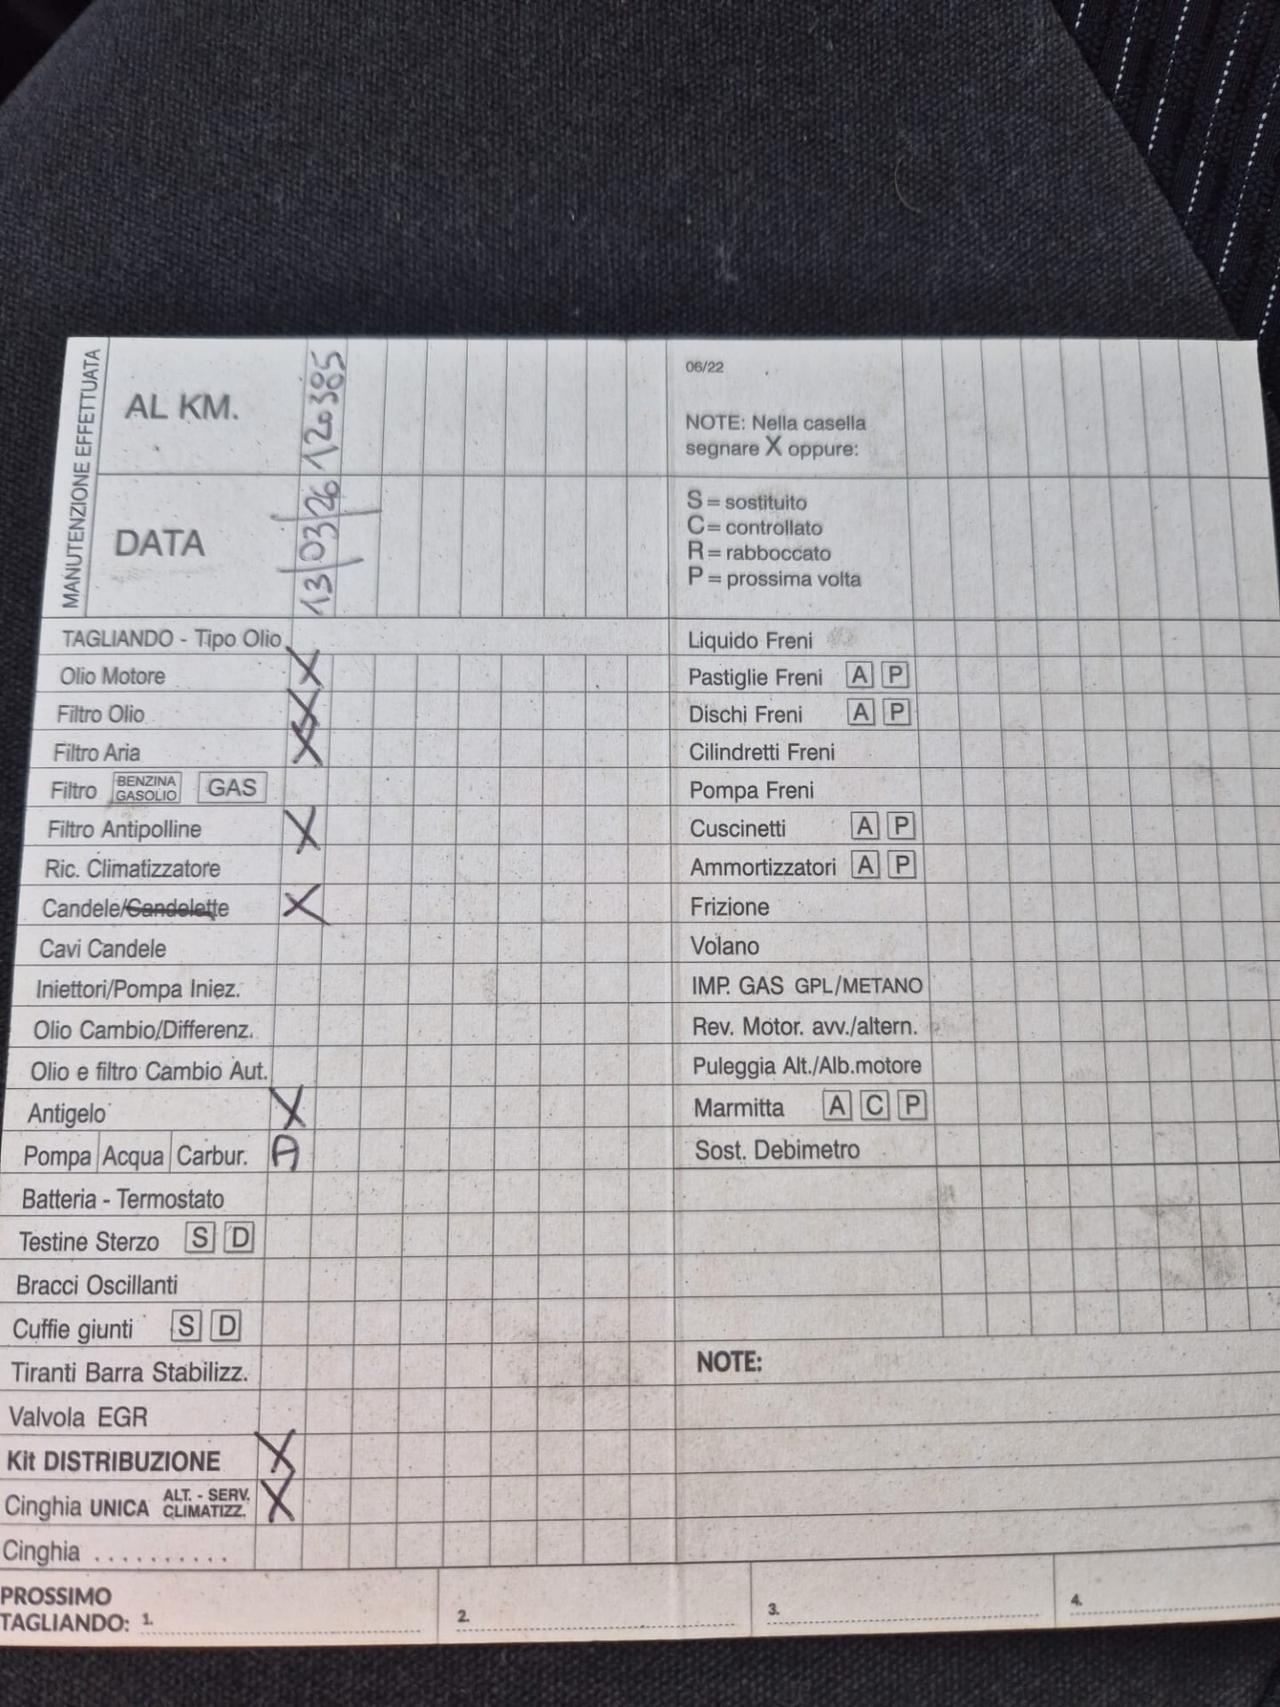 MANUTENZIONE EFFETTUATA
AL KM. 120385
DATA 13/03/26
TAGLIANDO - Tipo Olio
Olio Motore X
Filtro Olio X
Filtro Aria X
Filtro BENZINA GASOLIO GAS
Filtro Antipolline X
Ric. Climatizzatore
Candele/Candelette X
Cavi Candele
Iniettori/Pompa Iniez.
Olio Cambio/Differenz.
Olio e filtro Cambio Aut.
Antigelo X
Pompa Acqua Carbur. A
Batteria - Termostato
Testine Sterzo S D
Bracci Oscillanti
Cuffie giunti S D
Tiranti Barra Stabilizz.
Valvola EGR
Kit DISTRIBUZIONE X
Cinghia UNICA ALT. - SERV. CLIMATIZZ. X
Cinghia ..........
06/22
NOTE: Nella casella
segnare X oppure:
S = sostituito
C = controllato
R = rabboccato
P = prossima volta
Liquido Freni
Pastiglie Freni A P
Dischi Freni A P
Cilindretti Freni
Pompa Freni
Cuscinetti A P
Ammortizzatori A P
Frizione
Volano
IMP. GAS GPL/METANO
Rev. Motor. avv./altern.
Puleggia Alt./Alb.motore
Marmitta A C P
Sost. Debimetro
NOTE:
PROSSIMO
TAGLIANDO: 1. 2. 3. 4.